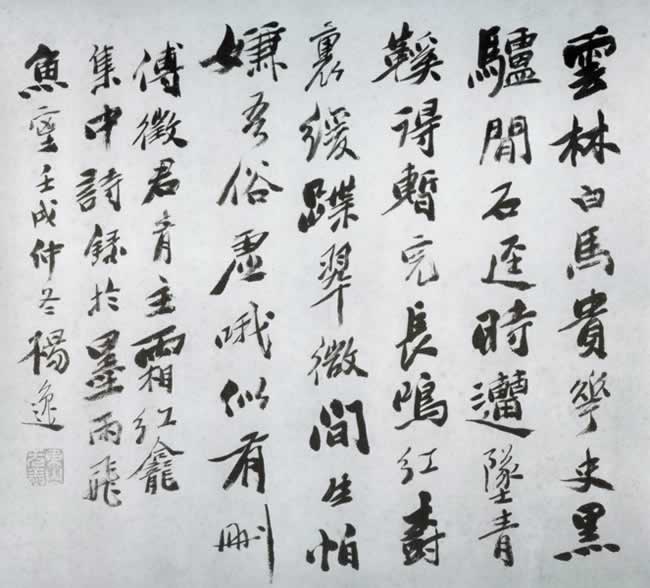 雲林白馬貴華史黑
驢閒石逕時遭墜青
鞵得暫完長鳴紅樹
裏緩蹀翠微間生怕
嫌吾俗虛哦似有刪
傅徵君青主霜紅龕
集中詩錄於墨雨飛
魚室壬戌仲冬楊逸